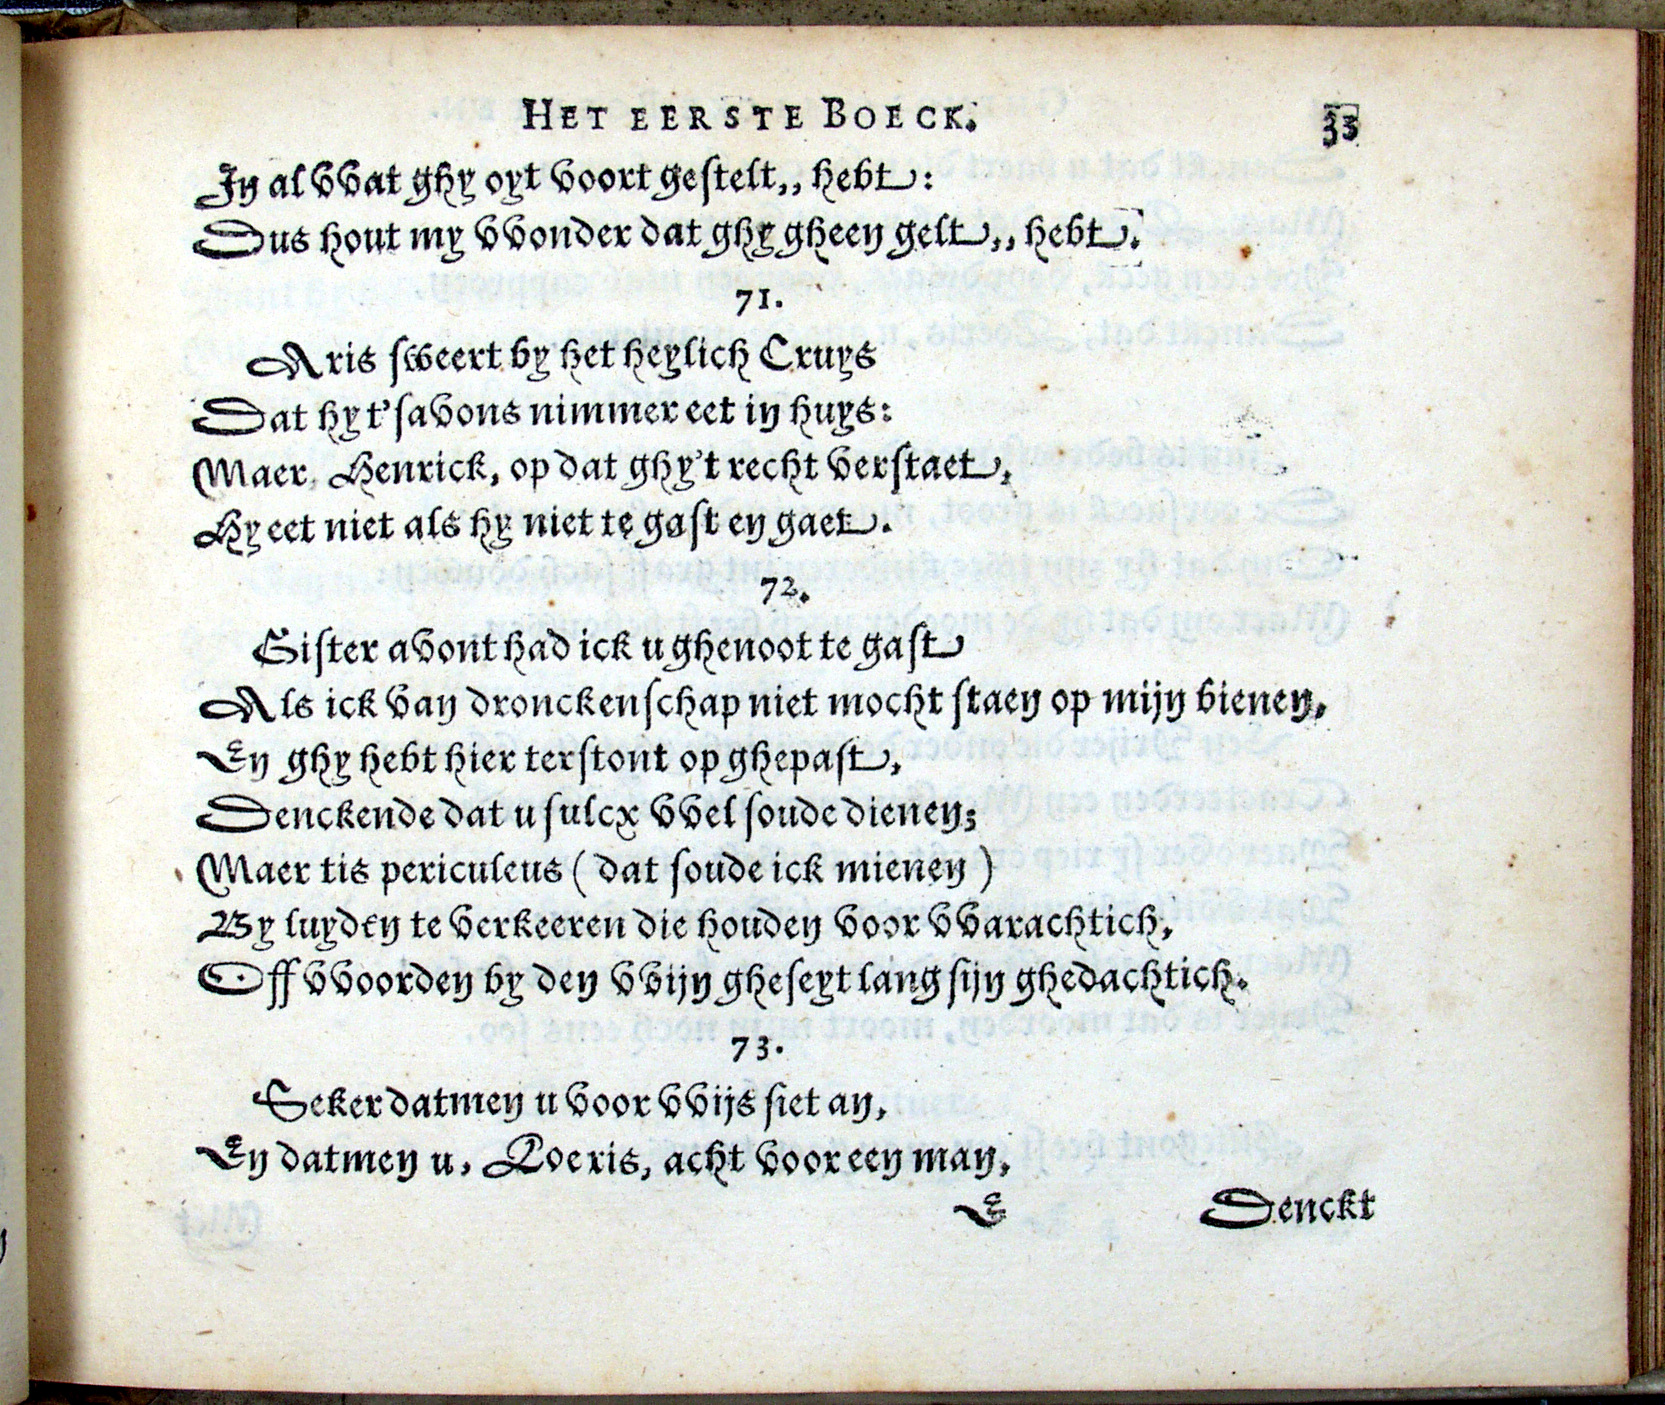 HET EERSTE BOECK. 33
In al vvat ghy oyt voort gestelt,, hebt:
Dus hout my vvonder dat ghy gheen gelt,, hebt.
71.
Aris sweert by het heylich Cruys
Dat hy t'savons nimmer eet in huys:
Maer, Henrick, op dat ghy't recht verstaet,
Hy eet niet als hy niet te gast en gaet.
72.
Gister avont had ick u ghenoot te gast
Als ick van dronckenschap niet mocht staen op mijn bienen,
En ghy hebt hier terstont op ghepast,
Denckende dat u sulcx vvel soude dienen;
Maer tis periculeus (dat soude ick mienen)
By luyden te verkeeren die houden voor vvarachtich,
Off vvoorden by den vvijn gheseyt lang sijn ghedachtich.
73.
Seker datmen u voor vvijs siet an,
En datmen u, Roeris, acht voor een man,
E Denckt